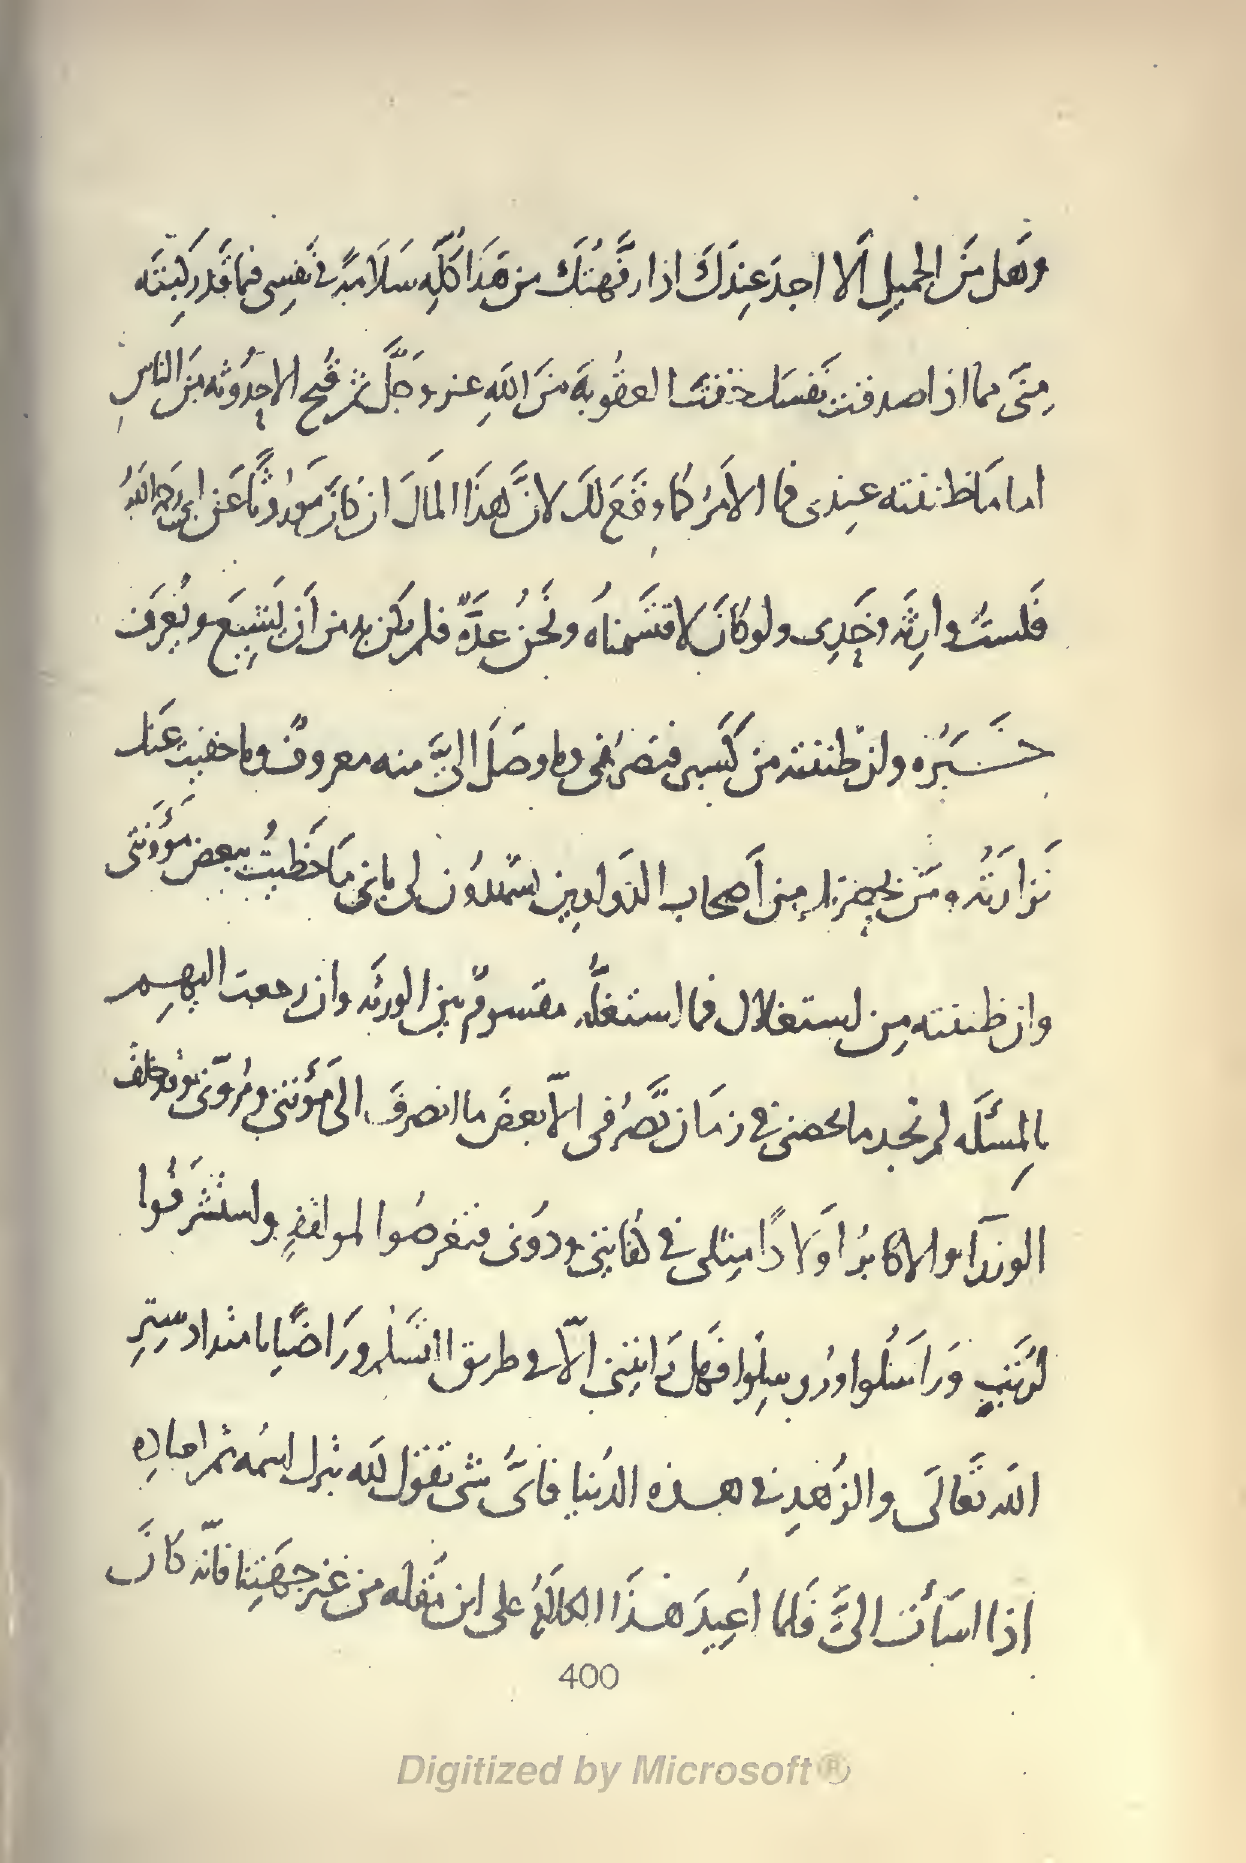 وَهل مِنَ الجميلِ اَلا اجدَ عِندَكَ اذا رفّهتك من هَذا كُلّه سَلامةً في نَفسِى فيما قَد رَكِبتَه
مِنّى مما اذا صدقت نَفسَك خفتَ العقُوبَة مِنَ اللهِ عز وجَلَّ ثم قُبح الاحدُوثه مِنَ الناسِ
اما مَا ظننته عِندى فما الاَمرُ كما وقَعَ لك لانَّ هَذا المالَ ان كانَ مَورُوثًا عَن ابى رَحِمَه اللهُ
فَلستُ وارثَه وَحدِى ولو كانَ لاقتَسَمناهُ ونَحنُ عدَّةٌ فلم يكن بد من اَن يَشِيعَ ويُعرَف
خَبَرُه وان ظننته من كَسبى فتَصَرّفى وما وصَلَ الىَّ منه معروفٌ وما خفيت عَنك
نزارَتُه ومَن بحضرتك مِن اَصحاب الدَواوين يشهدُون لى بانى مَا حَظيتُ ببعض مَؤُونتى
وان ظننته مِن استغلال فما استغلُّه مقسومٌ بين الورثَه وان رجعت اليهِم
بالمِسئَله لم تجد ما يخصنى فى زمَان تَصَرُفى الاّ بعضَ ما انصرفَ الى مَؤُنتى ومُروّتى
الوزرَآء والاكابرُ اَولادًا مِثلى فى كفايتى ودُونى فتعرضُوا لمواقفِ واستشرَفُوا
لرُتَبٍ وَرَاسَلُوا ورُوسِلُوا فَهل رَايتنى الاّ فى طريق السَّلم ورَاضيًا بامتدادِ سِترِ
الله تَعالَى والزُهدِ فى هذه الدُنيا فاىُّ شى تقوُل للهِ تبرك اسمُه ثم لعبادِه
اذا اسَأتَ الىَّ فَلما اُعِيدَ هَذَا الكلَامُ على ابن مُقله من غير جهَتِنا فانّه كانَ
400
Digitized by Microsoft®